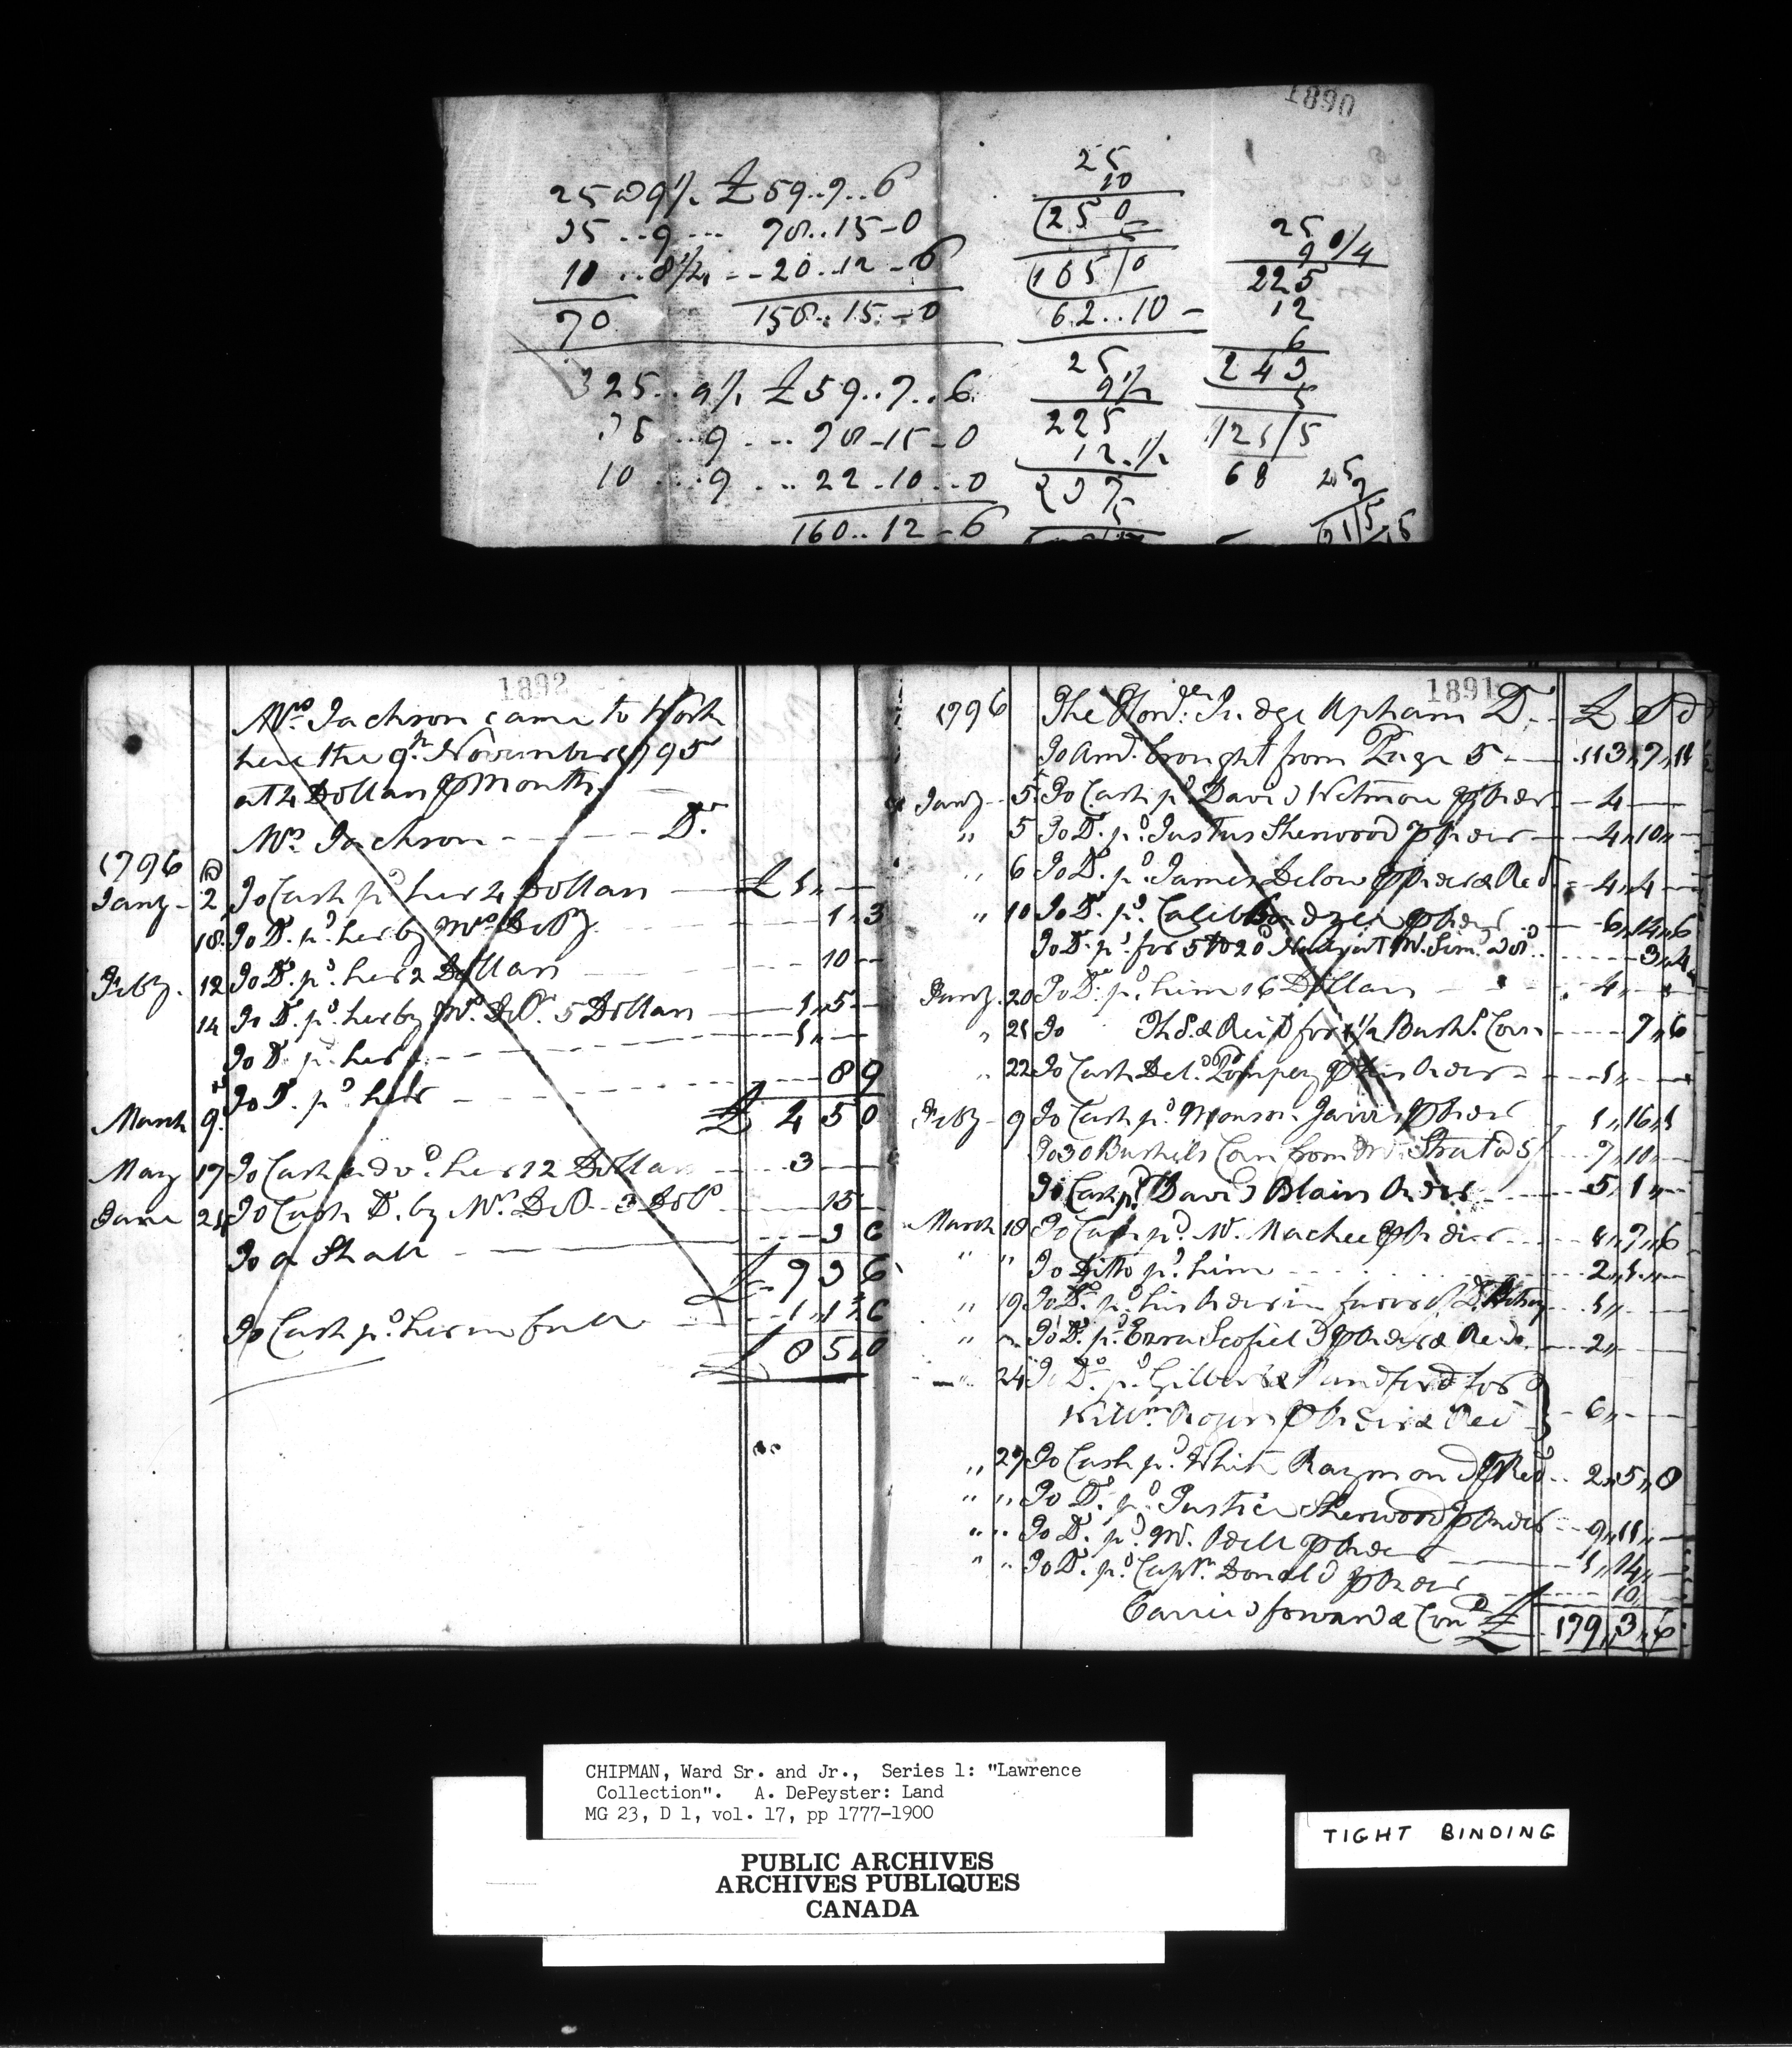 1890
25 @ 9/. £59..7..6
35 .. 9 ... 78..15-0
10 .. 8 1/2 .. 20..12-6
70 158..15-0
325 .. 9/. £59..7..6
35 .. 9 .... 78-15-0
10 ... 9 ... 22.10..0
160..12-6
25
10
250
5
62..10-
25
9 1/2
225
12.1/2
237
5
25
9 3/4
225
12
6
243
5
121/5
68
1892
Mrs. Jackson came to Work
here the 9th. November 1795
at 4 Dollars ⅌ Month.
Mrs. Jackson - - - - - Dr.
1796
Jany - 2 To Cash pd. her 4 Dollars — £ 1,, —
18 To Do. pd. her by Mrs. DeP. - - - 1,, 3
Feby. 12 To Do. pd. her 2 Dollars - - - 10 —
14 To Do. pd. her by Mr. DeP. 5 Dollars - 1,, 5 —
To Do. pd. her - - - 1,, —
To Do. pd. her - - - 8 9
March 9. £ 4 5 0
May 17 To Cash adv'd. her 12 Dollars - - 3 —
June 21 To Cash Do. by Mr. DeP. 3 Dolls - - 15 —
To a Shall - - - 3 6
£ 7 3 6
To Cash pd. her in full - - 1,, 1,, 6
£ 8 5,, 0
1891
1796 The Honble. Judge Upham Dr. - £ S d
To Amt. brought from Page 5 - - 113,, 7,, 11
Jany - 5 To Cash pd. David Wetmore ⅌ Order - 4 —
,, 5 To Do. pd. Justus Sherwood ⅌ Order - 4,, 10,, —
,, 6 To Do. pd. James Below ⅌ Order & Rect. - 4,, 4 —
,, 10 To Do. pd. Caleb ⅌ Order - 6,, 14,, 6
To Do. pd. for 5 - - - 3,, 4
Jany. 20 To Do. pd. him 16 Dollars - - 4,, —
,, 21 To Th S. & Reid for 1 1/2 Bushs. Corn - - 7,, 6
,, 22 To Cash Deld. Pompey ⅌ his Order - - 1,, —
Feby - 9 To Cash pd. Monson Jarvis ⅌ Order 1,, 16,, 1
To 30 Bushels Corn from Mr. Street @ 5/ 7,, 10,, —
To Cash pd. David Blairs Order - - 5,, 1,, —
March 18 To Cash pd. W. Machee ⅌ Order - - 1,, 7,, 6
,, ,, To Ditto pd. him - - - 2,, 1,, —
,, 19 To Do. pd. his Order in favor of D. - 1,,
,, ,, To Do. pd. Ezra Scofield ⅌ Order & Rect. - 2,,
,, 24 To Do. pd. Gilbert & Handford for
Willm. Rogers ⅌ Order & Rect. } - 6,, —
,, 27 To Cash pd. White Raymond ⅌ Rect. - 2,, 5,, 8
,, ,, To Do. pd. Justice Sherwood ⅌ Order - 9,, 11,, —
,, ,, To Do. pd. Mr. Odell ⅌ Order — 1,, 14,, —
,, ,, To Do. pd. Captn. Donald ⅌ Order - - 10,,
Carried forward & Cond. £ 179,, 3,, 6
CHIPMAN, Ward Sr. and Jr., Series 1: "Lawrence
Collection". A. DePeyster: Land
MG 23, D 1, vol. 17, pp 1777-1900
PUBLIC ARCHIVES
ARCHIVES PUBLIQUES
CANADA
TIGHT BINDING